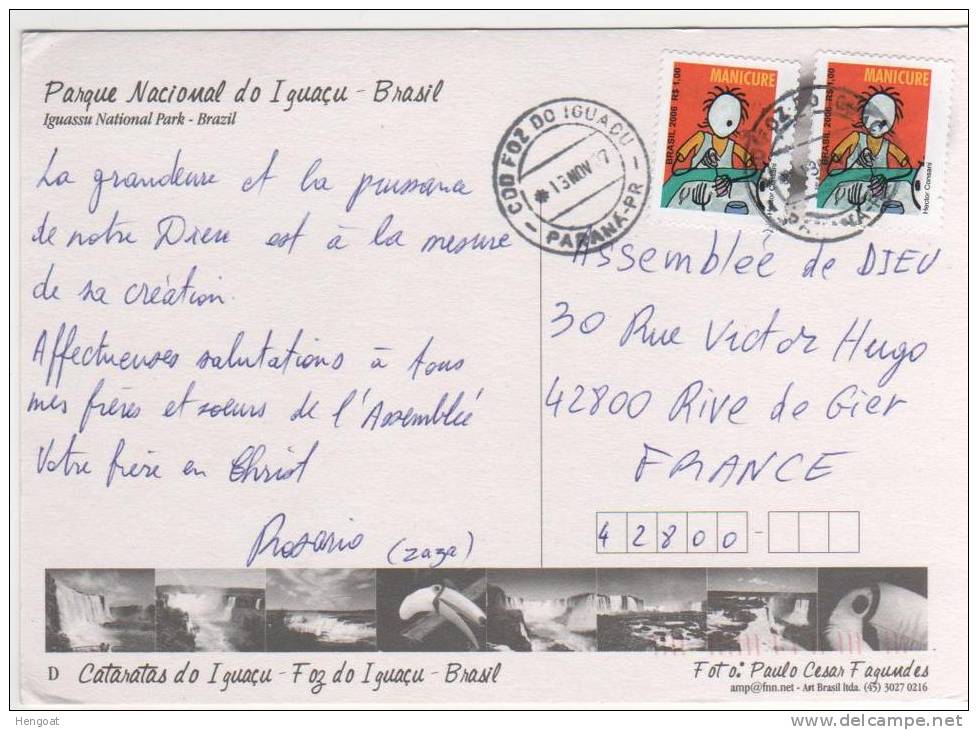 Parque Nacional do Iguaçu - Brasil
Iguassu National Park - Brazil
La grandeur et la puissance
de notre Dieu est à la mesure
de sa création.
Affectueuses salutations à tous
mes frères et soeurs de l'Assemblée
Votre frère en Christ
Rosario (zaza)
CDD FOZ DO IGUAÇU
13 NOV
PARANÁ-PR
MANICURE
BRASIL 2006 R$ 1,00
Hector Consani
MANICURE
BRASIL 2006 R$ 1,00
Hector Consani
Assemblée de DIEU
30 Rue Victor Hugo
42800 Rive de Gier
FRANCE
42800-
D Cataratas do Iguaçu - Foz do Iguaçu - Brasil
Foto: Paulo Cesar Fagundes
amp@fnn.net - Art Brasil ltda. (45) 3027 0216
Hengoat
www.delcampe.net